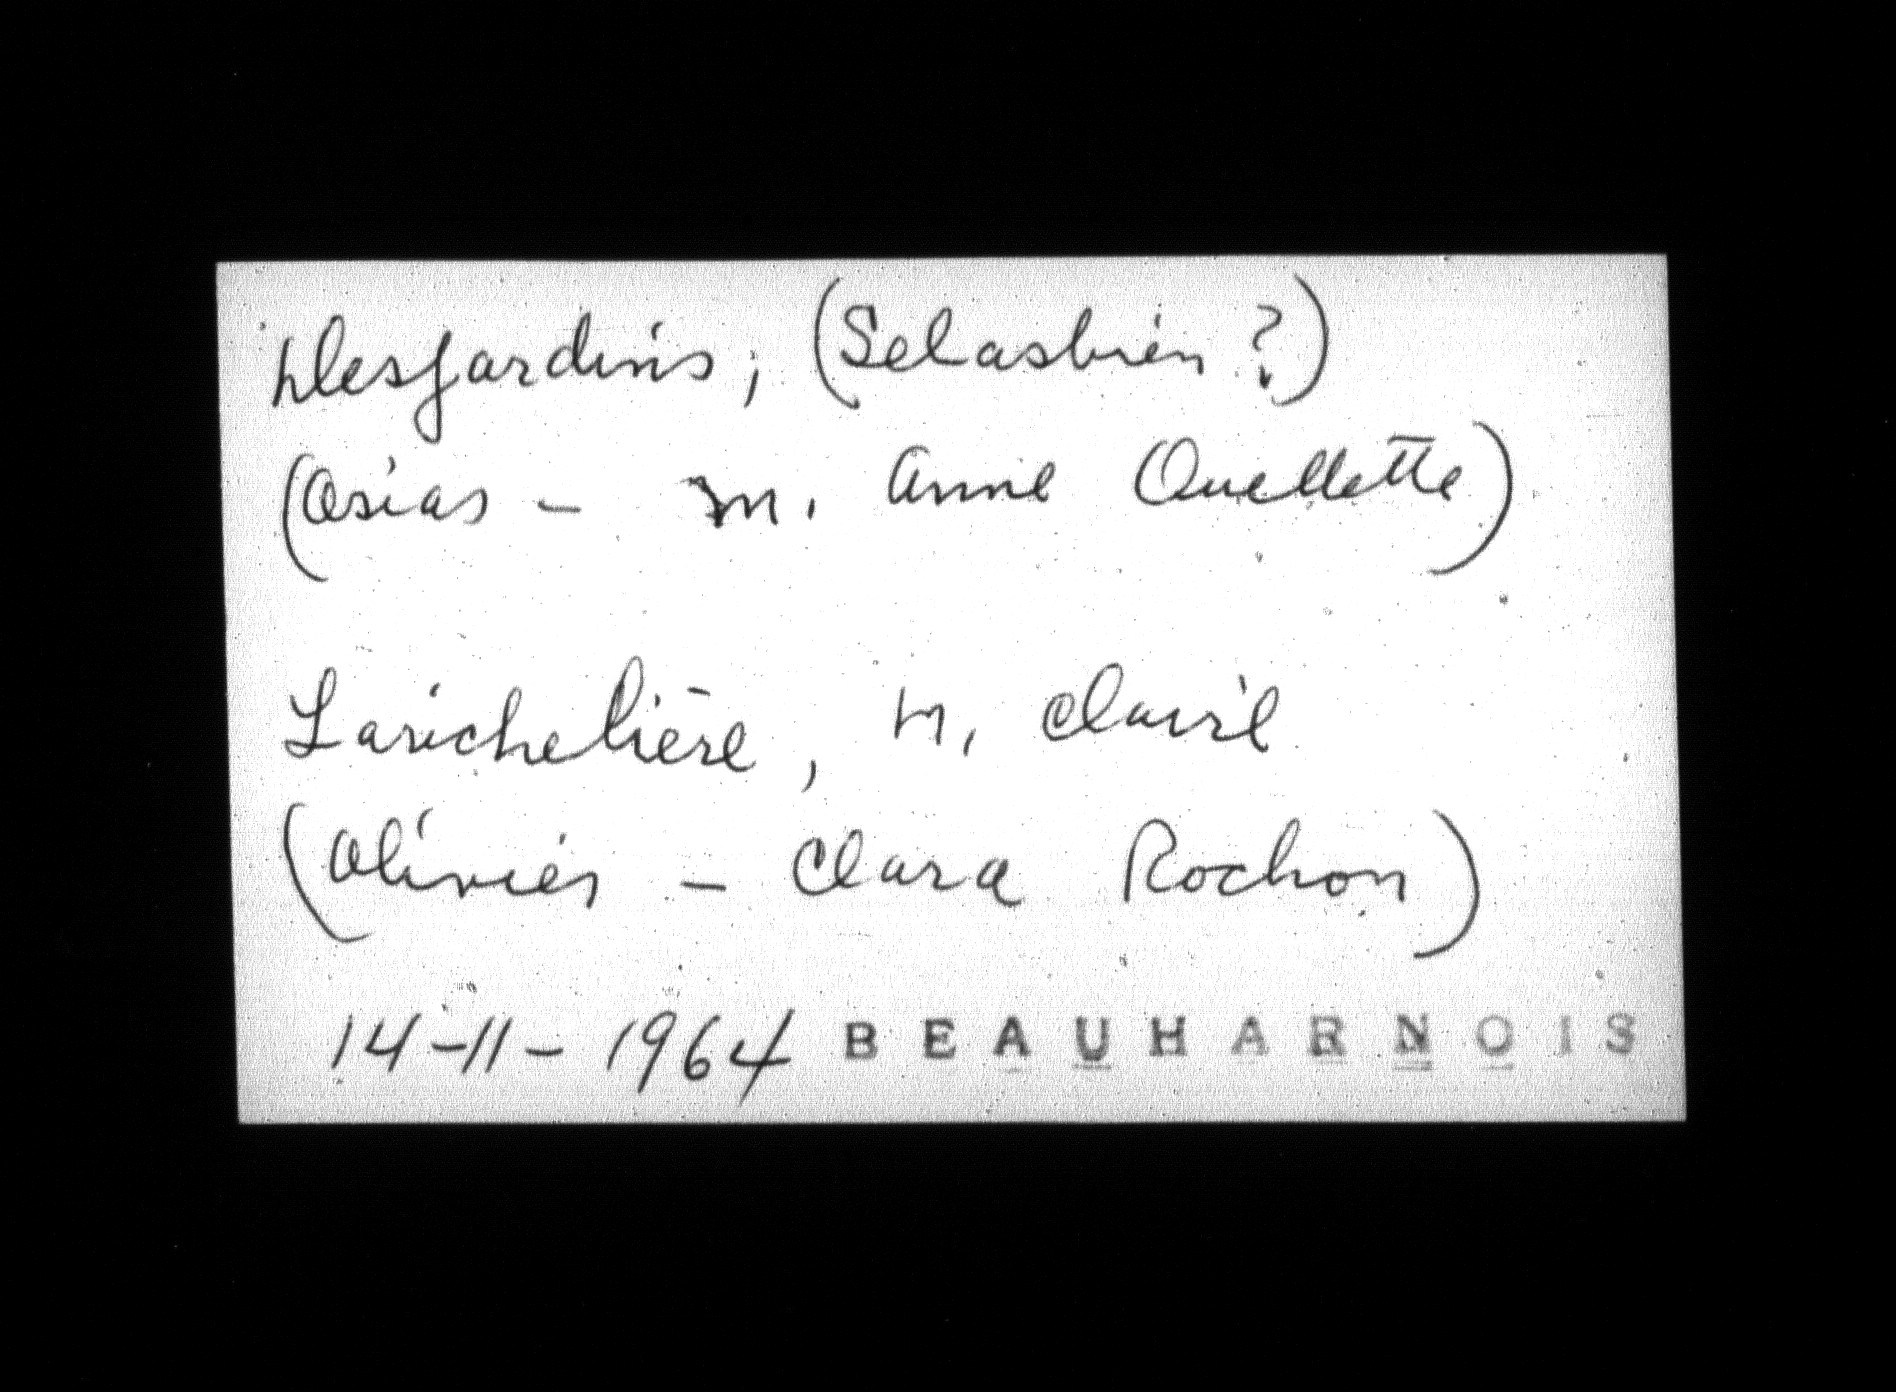 Desjardins, (Selasbien ?)
(Osias - M. Anne Ouellette)
Larichelière, M. Claire
(Olivier - Clara Rochon)
14-11-1964 BEAUHARNOIS